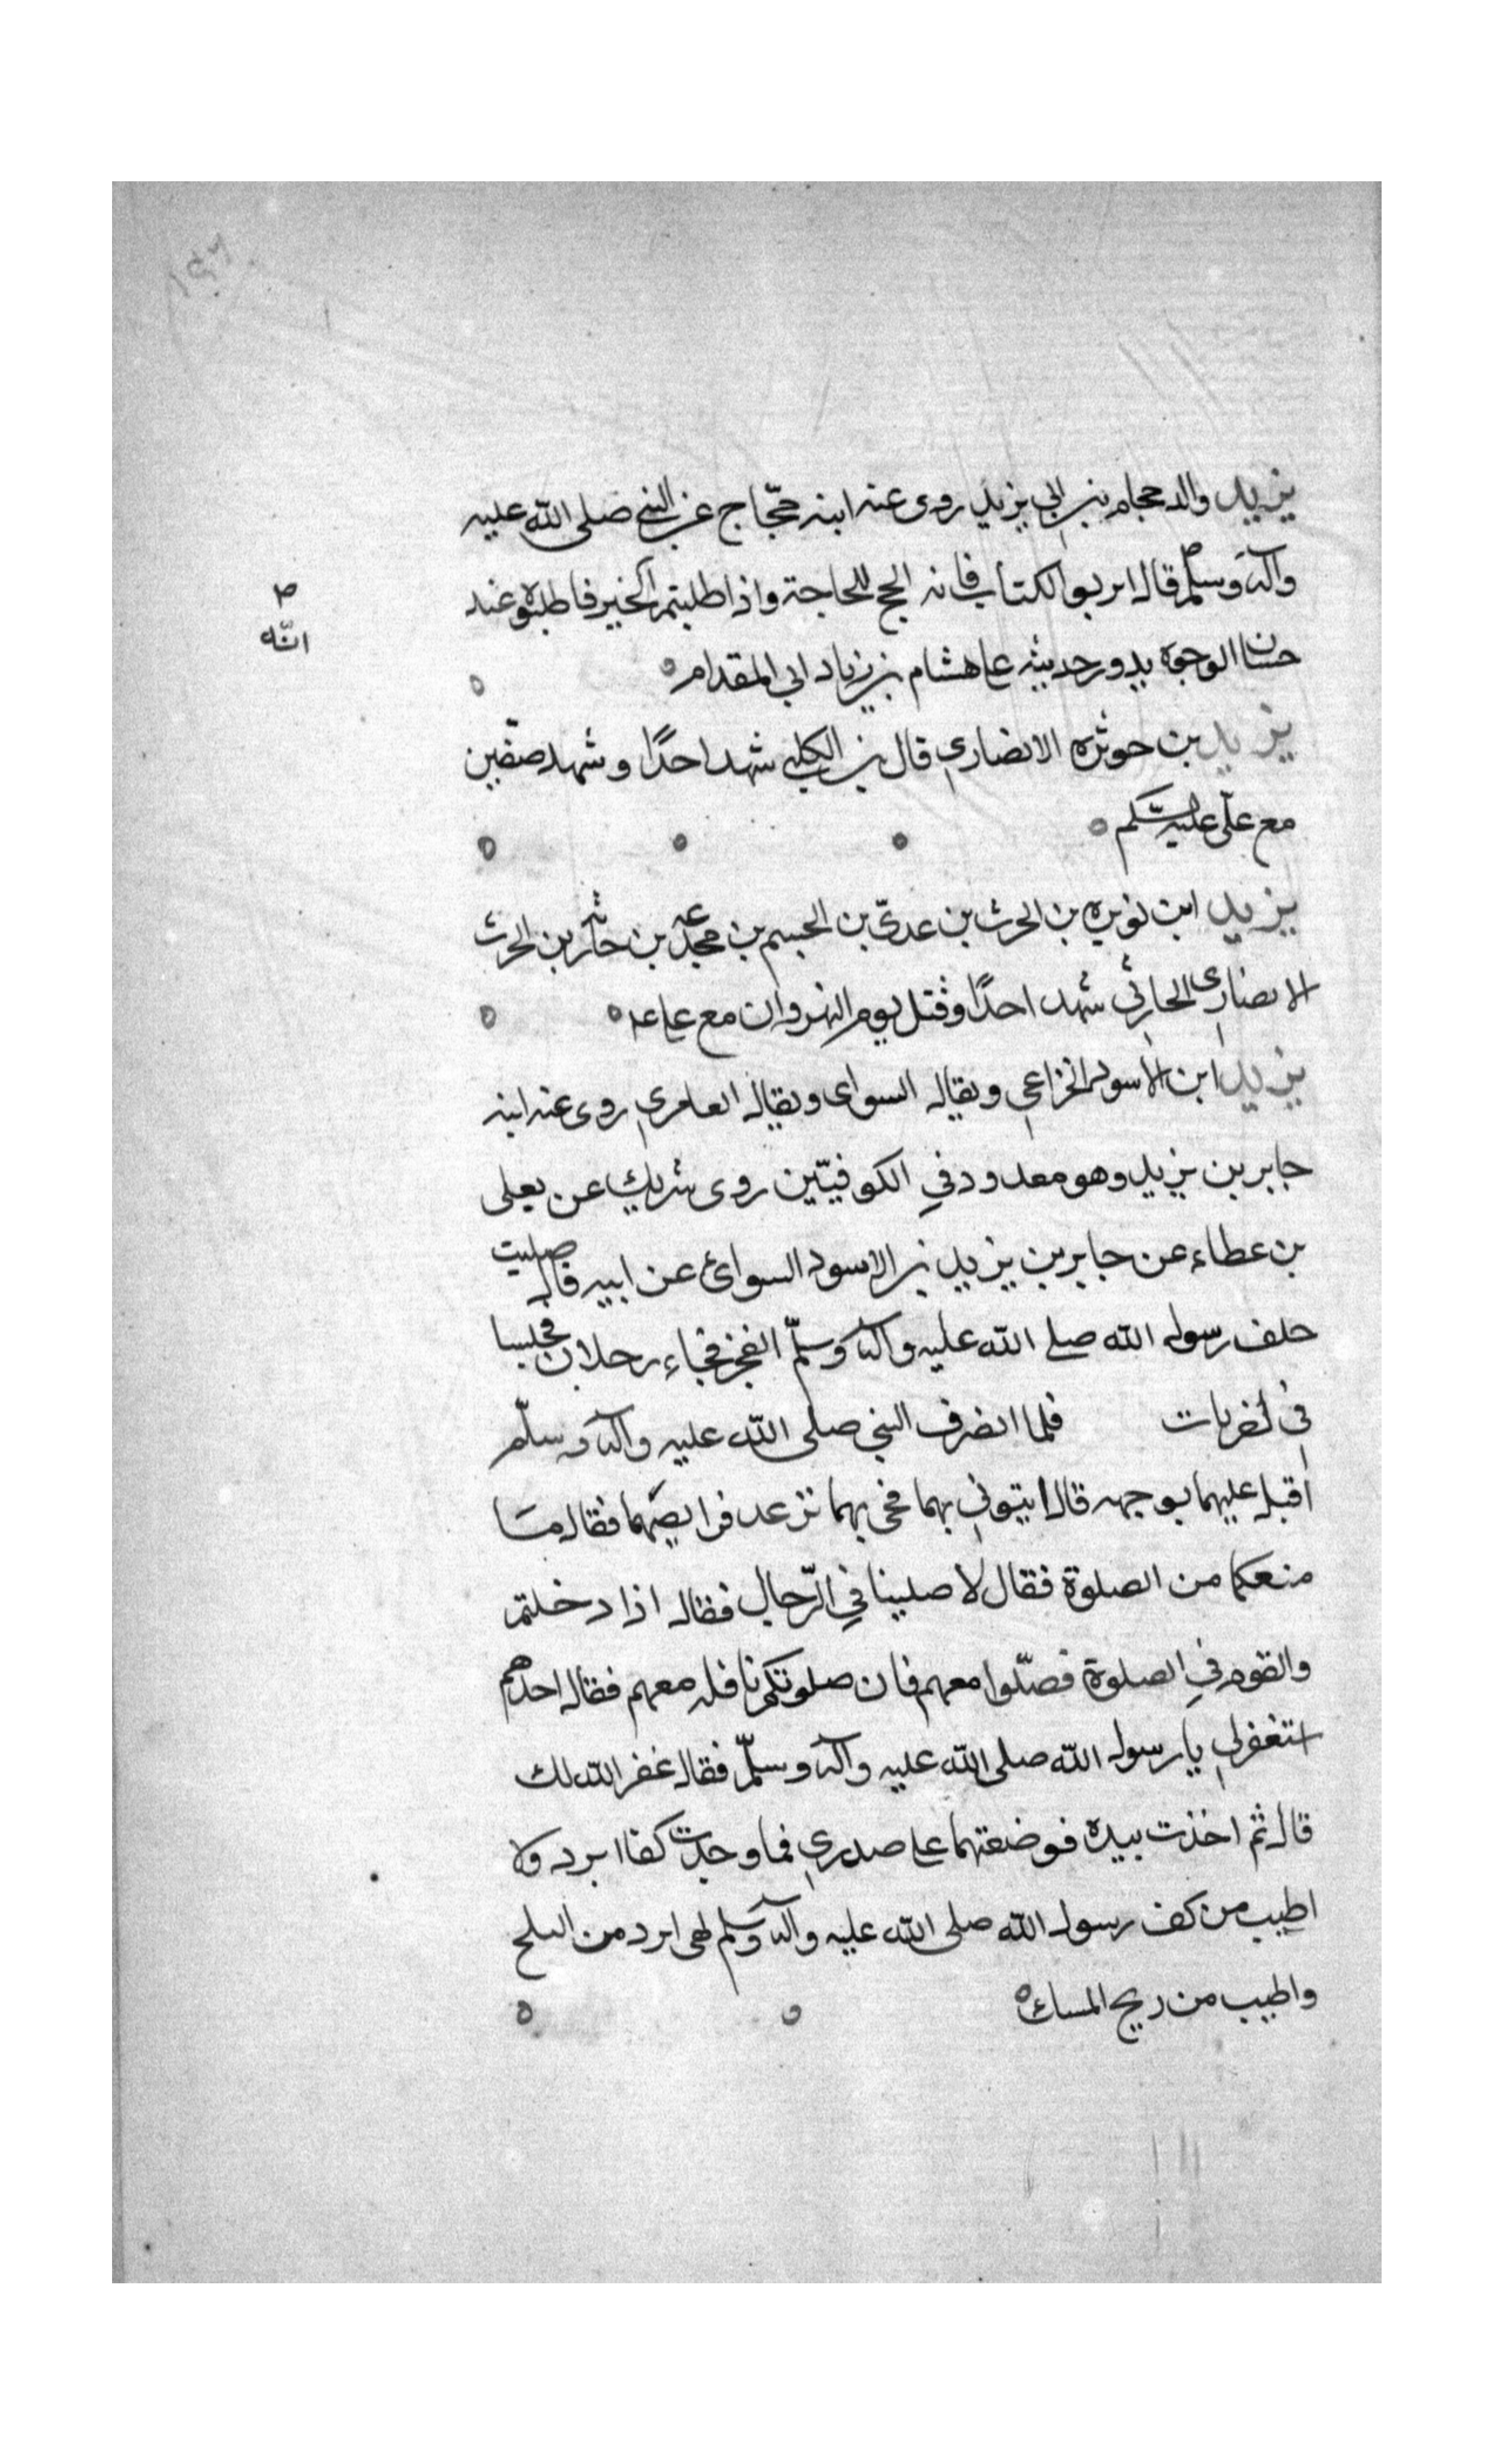 يزيد والد حجام بن ابي يزيد روى عنه ابنه حجّاج عن النبي صلى الله عليه
وآله وسلّم قال اربوا الكتاب فانه انجح للحاجة واذا طلبتم الخير فاطلبوه عند
انّه
حسان الوجوه يدور حديثه على هشام بن زياد ابي المقدام
يزيد بن حوثره الانصاري قال بن الكلبي شهد احدًا وشهد صفّين
مع علّى عليه السّلم
يزيد ابن نويره بن الحرث بن عدىّ بن الجسم بن مجدعه بن حارثه بن الحرث
الانصارى الحارثي شهد احدًا وقتل يوم النهروان مع على عه
يزيد ابن الاسود الخزاعي ويقال السواى ويقال العامري روى عنه ابنه
جابر بن يزيد وهو معدود في الكوفيّين روى شريك عن يعلى
بن عطاء عن جابر بن يزيد بن الاسود السوائ عن ابيه قال صليت
خلف رسول الله صلى الله عليه وآله وسلّم الفجر فجاء رجلان فجلسا
في اخريات فلما انصرف النبي صلى الله عليه وآله وسلّم
اقبل عليهما بوجهه قال ايتوني بهما فجى بهما ترعد فرايصهما فقال ما
منعكما من الصلوة فقالا صلينا في الرّحال فقال اذا دخلتم
والقوم في الصلوة فصّلوا معهم فان صلوتكم نافله معهم فقال احدهم
استغفر لي يا رسول الله صلى الله عليه وآله وسلّم فقال غفر الله لك
قال ثم اخذت بيده فوضعتهما على صدري فما وجدت كفا ابرد ولا
اطيب من كف رسول الله صلى الله عليه وآله وسلم لهى ابرد من الثلج
واطيب من ريح المسك